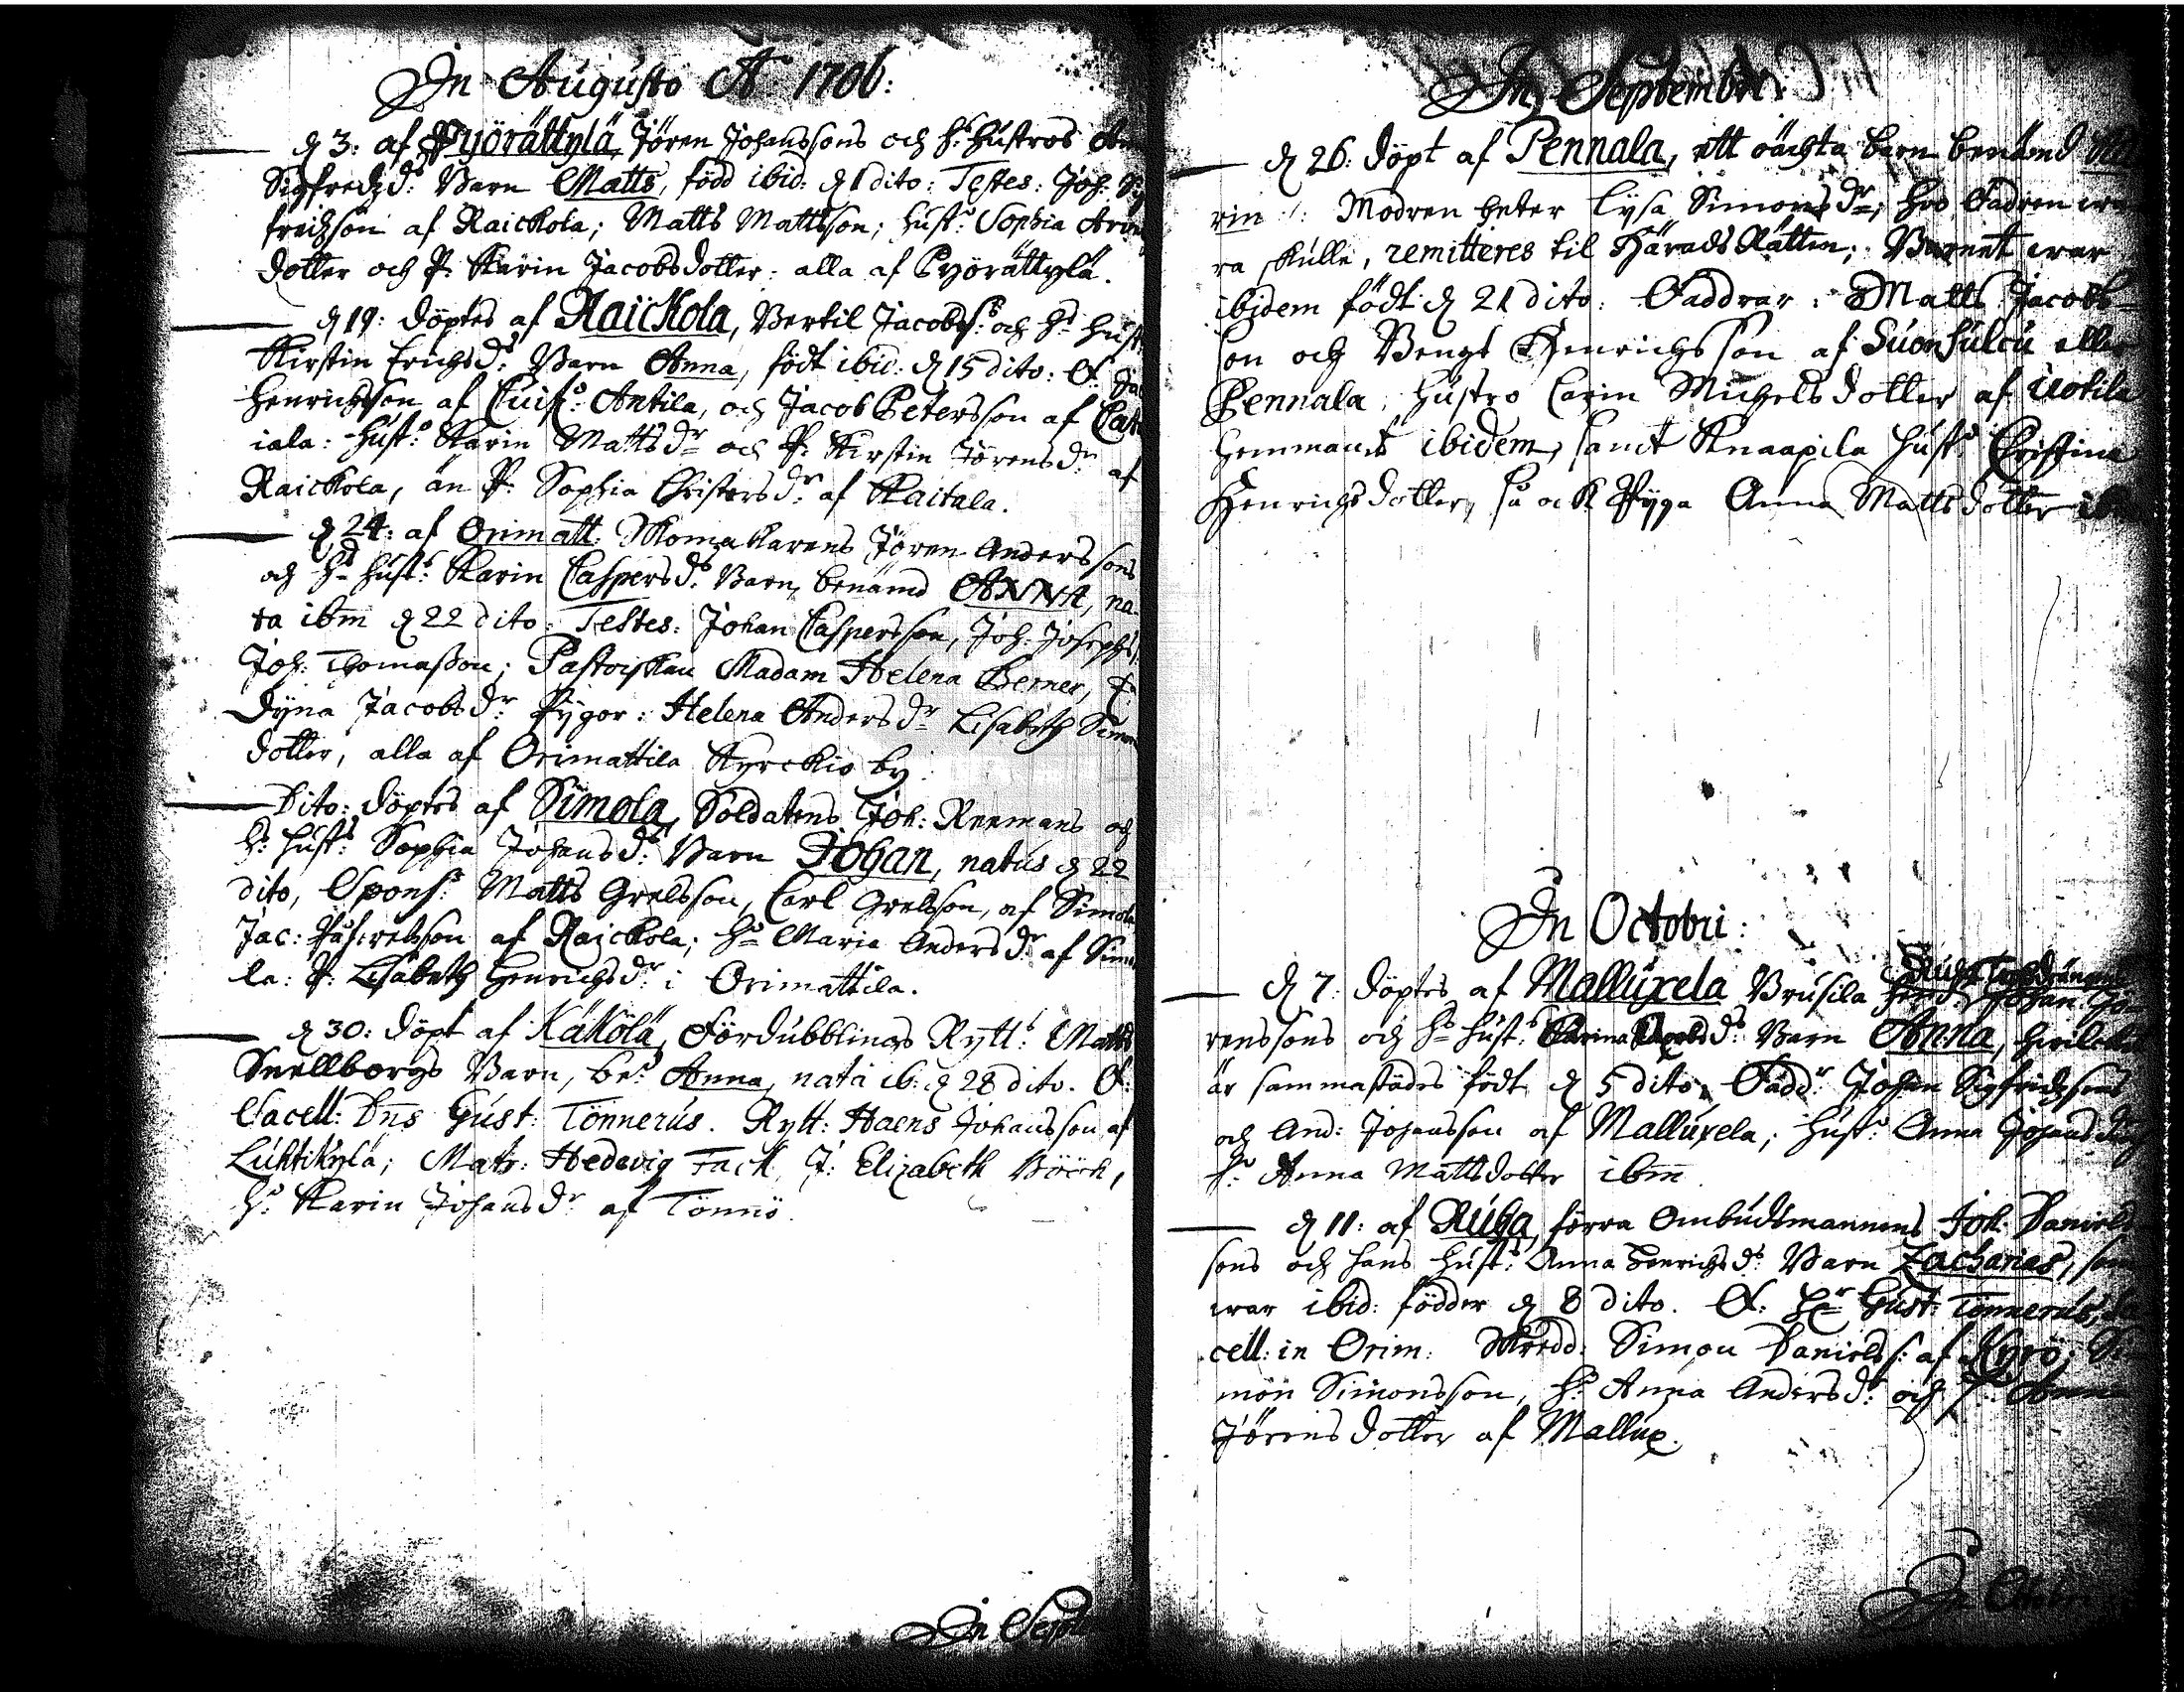 In Augusto A 1706:
d 3: af Pyörättylä, Jören Johanssons och h: hustros
Sigfredzds: Barn Matts, född ibid: d 1 dito: Testes: Joh: Sig
fredzson af Raickola; Matts Mattsson; hust: Sophia
dotter och P. Karin Jacobsdotter: alla af Pyörättylä.
d 19: döptes af Raickola, Bertil Jacobss: och hs hust:
Kirstin Erichsds: Barn Anna, födt ibid: d 15 dito: F:
Henrichsson af Antila, och Jacob Petersson af
iala: hust: Karin Mattsdr och P: Kirstin Jörensdr: af
Raickola, än P: Sophia Christersdr: af Kaitala.
d 24: af Orimatt: Jören Anderssons
och hs hust: Karin Caspersds: Barn, benämd ANNA, na-
ta ibm d 22 dito: Testes: Johan Caspersson, Joh: Josephs:
Joh: Thomasson; Pastorskan Madam Helena
Jacobsdr: Pygor: Helena Andersdr Lisabeth Simons
dotter, alla af Orimattila Kyrckio by.
Dito: döptes af Simola, Soldatens Joh: Reemans och
hs: hust: Sophia Johansds: Barn Johan, natus d 22
dito, Spons: Matts Grelsson, Carl Grelsson, af Simola
Jac: af Raickola; Maria Andersdr: af Simo
la: P: Lisabeth Henrichsdr: i Orimattila.
d 30: döpt af Käkölä, Fördubblings Rytt: Matts
Snellborgs Barn, be: Anna, nata ib: d 28 dito. F:
Sacell: Dns Gust: Tönnerus. Rytt: Haens Johansson af
Luhtikylä; Matr: Hedevig Tack, J: Elizabeth Böök,
h: Karin Johansdr af Tönnö.
In Septe
In Septembri:
d 26: döpt af Pennala, ett oächta barn benämd
rin : Modren heter Lysa Simonsdr; hvo Fadren wa
ra skulle, remitteres til Härads Rätten; Barnet war
ibidem födt d 21 dito: Faddrar: Matts Jacobs-
son och Bengt Henrichsson af Suonsulcu eller
Pennala, hustro Carin Michelsdotter af Uotila
hemmans ibidem, samt Knaapila hust: Christina
Henrichsdotter, så ock Pyga Anna Mattsdotter
In Octobri:
d 7: döptes af Malluxela Brusila Johan Jö-
renssons och hs hust: Barn Anna, hwilcket
är sammastädes födt d 5 dito, Fadd: Johan Sigfridzson
och And: Johansson af Malluxela; hust: Anna Johans
P: Anna Mattsdotter ibm
d 11: af Ruha, förra Ombudsmannens Joh: Daniels
sons och hans hust: Anna Henrichsds: Barn Zacharias, som
war ibid: födder d 8 dito. F: Hr Gust: Tönnerus,
cell: in Orim: Simon Daniels: af Kyrö; Si-
mon Simonsson, h: Anna Andersdr: och P: Anna
Jörensdotter af Mallux.
In Octobri